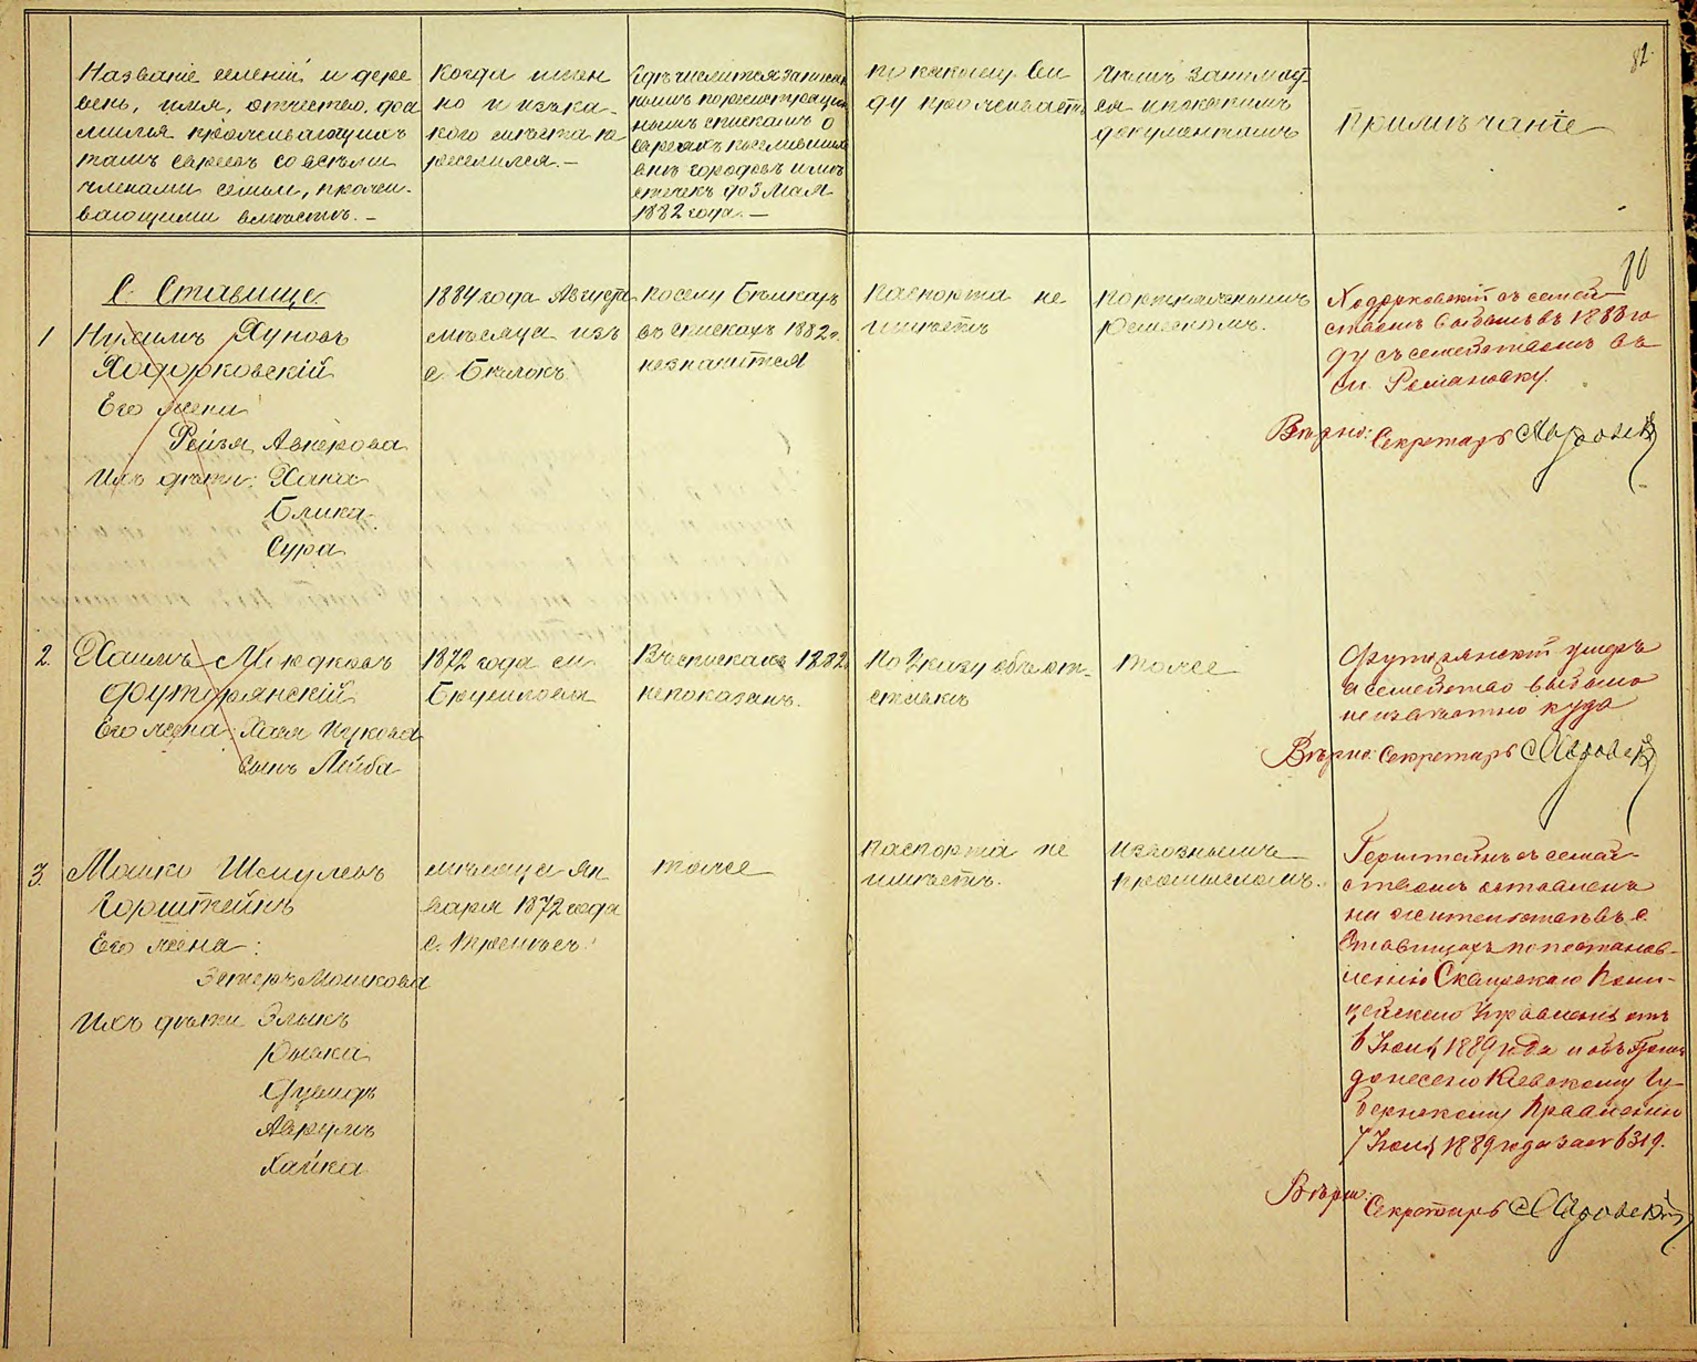 82.
Названіе селеній и дере
вень, имя, отчество, фа
милія проживающихъ
тамъ евреевъ со всѣми
членами семьи, прожи-
вающими вмѣстѣ. –
Когда имен
но и изъ ка-
кого мѣста пе
реселился. –
Гдѣ числится записан
нымъ по регистрацiон
нымъ спискамъ о
евреяхъ поселившихся
внѣ городовъ и мѣ
стечекъ до 3 Мая
1882 года. –
По какому ви
ду проживаетъ
Чѣмъ занимает
ся и по какимъ
документамъ
Примѣчаніе
80
С. Ставище
1
Нухимъ Хуновъ
Ходорковскій
Его жена
Рейзя Авнерова
Ихъ дѣти: Хана
Блима
Сура
1884 года Августа
мѣсяца изъ
с. Бѣлокъ
въ спискахъ 1882 г.
незначится
Паспорта не
имѣетъ
Портняжнымъ
ремесломъ.
Ходорковскій съ семей-
ствомъ выбылъ въ 1888 го
ду съ семействомъ въ
м. Романовку.
Вѣрно: Секретарь
2.
Хаимъ Мордковъ
Футорянскій
Его жена: Хая Ицкова
сынъ Лейба
1872 года
Въ спискахъ 1882
непоказанъ.
По Указу объ от-
ставкѣ
тоже
Футорянскій умеръ
а семейство выбыло
неизвѣстно куда
Вѣрно: Секретарь
3.
Мошко Шмулевъ
Горштейнъ
Его жена:
Эстеръ Мошкова
Ихъ дѣти
Рывка
Аврумъ
Хайка
мѣсяца Ян
варя 1872 года
тоже
Паспорта не
имѣетъ.
Извознымъ
промысломъ.
Герштейнъ съ семей-
ствомъ оставленъ
на жительствѣ въ с.
Ставищахъ по постанов-
ленію Сквирскаго Поли-
цейскаго Управленія отъ
6 Іюня 1889 года и объ этомъ
донесено Кіевскому Гу-
бернскому Правленію
7 Іюня 1889 года за № 6319.
Вѣрно:
Секретарь